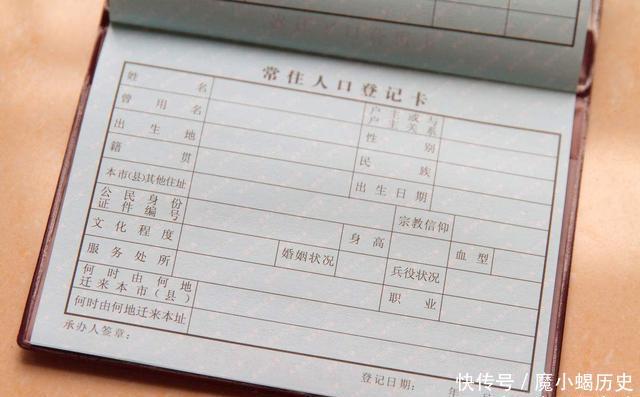 常住人口登记卡
姓名 户主或与户主关系
曾用名 性别
出生地 民族
籍贯 出生日期
本市(县)其他住址 宗教信仰
公民身份证件编号 身高 血型
文化程度 婚姻状况 兵役状况
服务处所 职业
何时由何地迁来本市(县)
何时由何地迁来本址
承办人签章：
登记日期： 年
快传号 / 魔小蝎历史